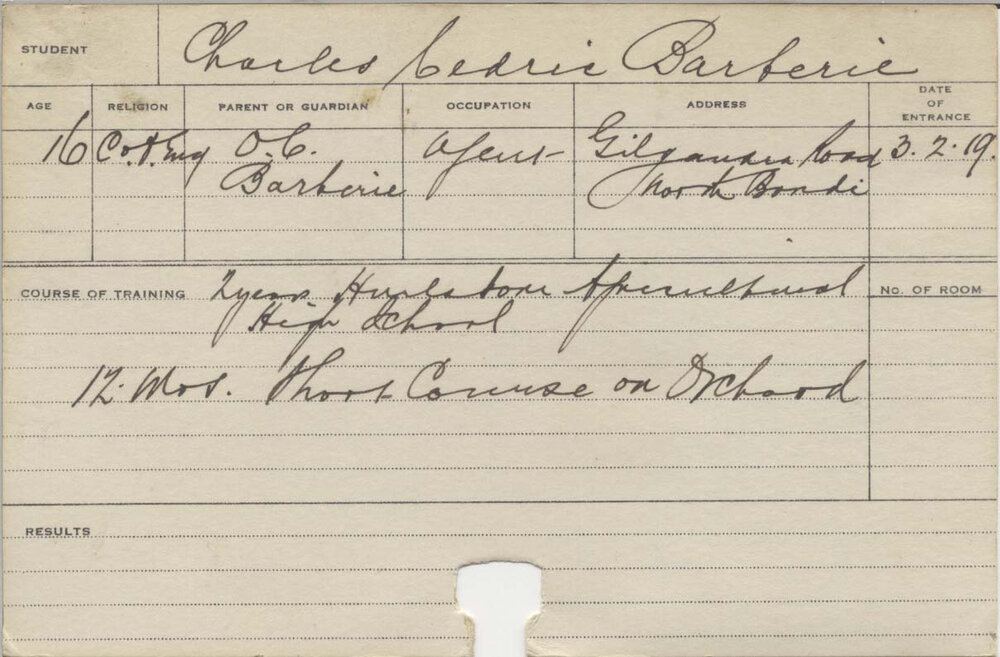 STUDENT Charles Cedric Barberie
AGE RELIGION PARENT OR GUARDIAN OCCUPATION ADDRESS DATE OF ENTRANCE
16 C. of Eng O.C. Agent Gilgandra Road 3.2.19.
Barberie North Bondi
COURSE OF TRAINING 2 years Hurlstone Agricultural No. OF ROOM
High School
12 Mos. Short Course on Orchard
RESULTS